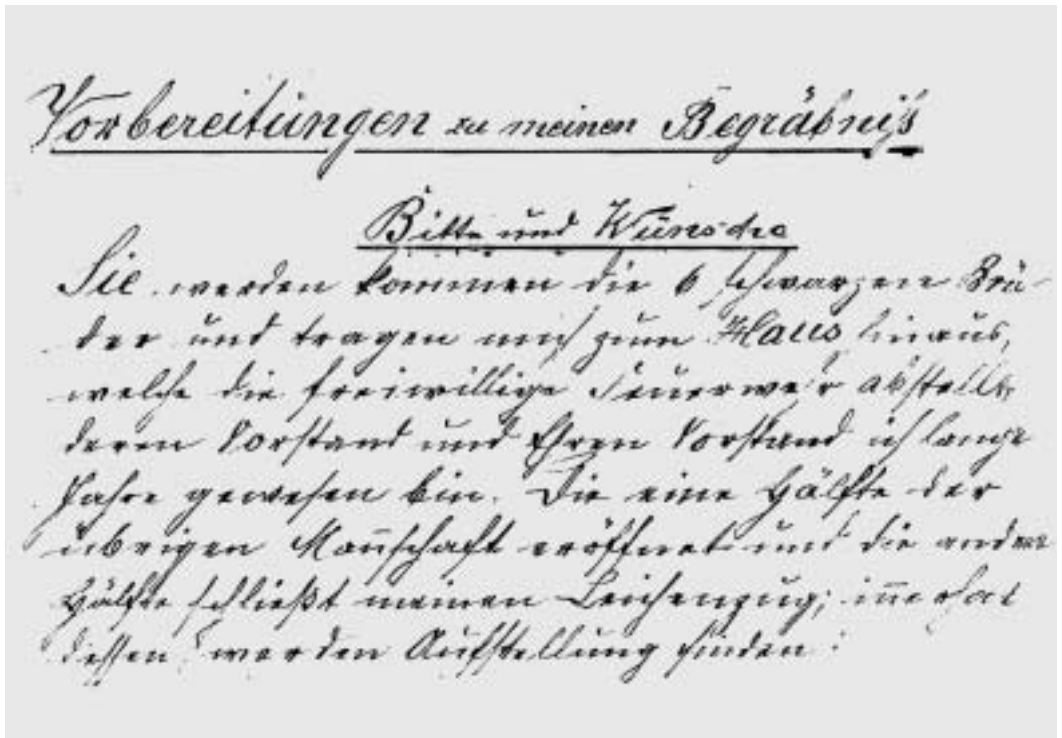 Vorbereitungen zu meinen Begräbniß
Bitte und Wünsche
Sie werden kommen die 6 schwarzen Brü-
der und tragen mich zum Haus hinaus,
welche die freiwillige Feuerwehr abstellt,
deren Vorstand und Ehren Vorstand ich lange
Jahre gewesen bin. Die eine Hälfte der
übrigen Mannschaft eröffnet und die andere
Hälfte schließt meinen Leichenzug; innerhalb
dessen werden Aufstellung finden: